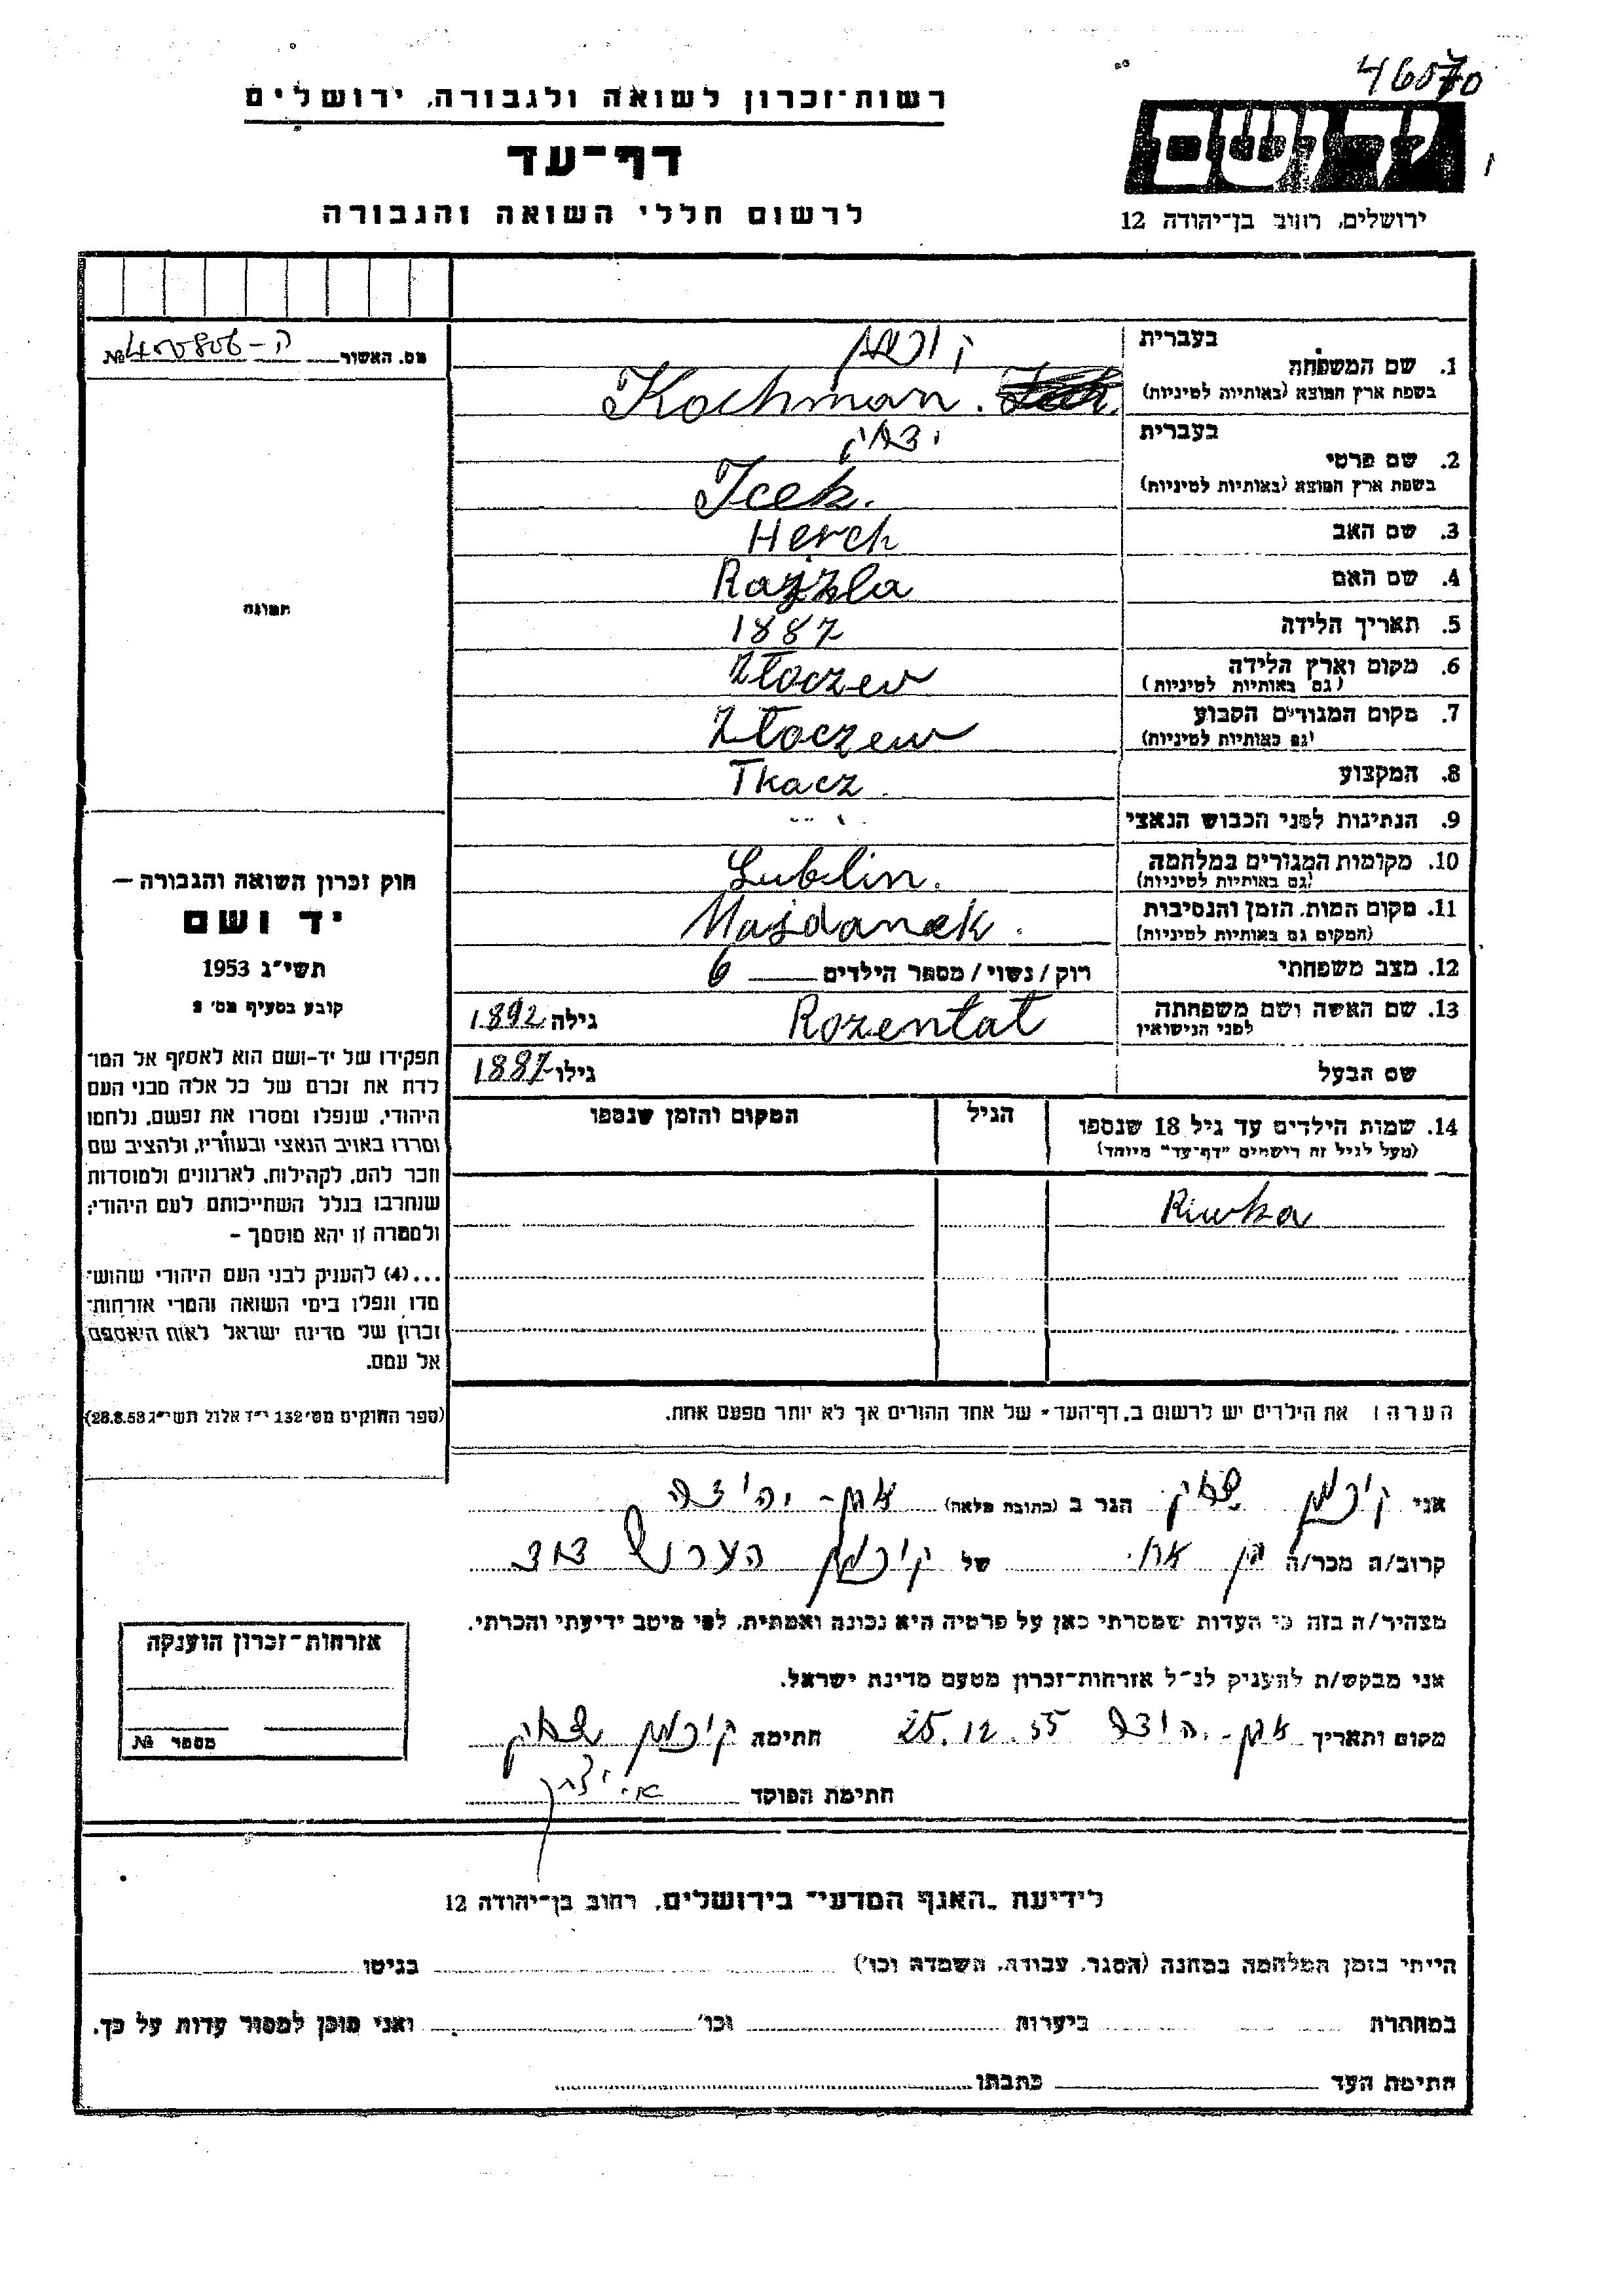 46570
רשות־זכרון לשואה ולגבורה, ירושלים
דף־עד
לרשום חללי השואה והגבורה
יד ושם
ירושלים, רחוב בן־יהודה 12
מס. האשור ה-400806 №
תמונה
1. שם המשפחה
בעברית קוכמן
בשפת ארץ המוצא (באותיות לטיניות) Kochman.
2. שם פרטי
בעברית יצחק
בשפת ארץ המוצא (באותיות לטיניות) Icek.
3. שם האב Herch
4. שם האם Rajzla
5. תאריך הלידה 1887
6. מקום וארץ הלידה Złoczew
(גם באותיות לטיניות)
7. מקום המגורים הקבוע Złoczew
(גם באותיות לטיניות)
8. המקצוע Tkacz.
9. הנתינות לפני הכבוש הנאצי
10. מקומות המגורים במלחמה Lublin.
(גם באותיות לטיניות)
11. מקום המות, הזמן והנסיבות Majdanek.
(המקום גם באותיות לטיניות)
12. מצב משפחתי רוק/נשוי/מספר הילדים 6
13. שם האשה ושם משפחתה Rozental גילה 1892
לפני הנישואין
שם הבעל גילו 1887
14. שמות הילדים עד גיל 18 שנספו הגיל המקום והזמן שנספו
(מעל לגיל זה רישמים "דף־עד" מיוחד)
Riwka
הערה: את הילדים יש לרשום ב„דף־העד" של אחד ההורים אך לא יותר מפעם אחת.
חוק זכרון השואה והגבורה –
יד ושם
תשי"ג 1953
קובע בסעיף מס' 2
תפקידו של יד-ושם הוא לאסוף אל המו־
לדת את זכרם של כל אלה מבני העם
היהודי, שנפלו ומסרו את נפשם, נלחמו
ומרדו באויב הנאצי ובעוזריו, ולהציב שם
וזכר להם, לקהילות, לארגונים ולמוסדות
שנחרבו בגלל השתייכותם לעם היהודי;
ולמטרה זו יהא מוסמך –
...(4) להעניק לבני העם היהודי שהוש־
מדו ונפלו בימי השואה והמרי אזרחות־
זכרון של מדינת ישראל לאות היאספם
אל עמם.
(ספר החוקים מס' 132 י"ז אלול תשי"ג 28.8.53)
אני קוכמן יצחק הגר ב (כתובת מלאה) אבן-יהודה
קרוב/ה מכר/ה בן אח של קוכמן הערש דוד
מצהיר/ה בזה כי העדות שמסרתי כאן על פרטיה היא נכונה ואמתית, לפי מיטב ידיעתי והכרתי.
אני מבקש/ת להעניק לנ"ל אזרחות־זכרון מטעם מדינת ישראל.
מקום ותאריך אבן-יהודה 25.12.55 חתימה קוכמן יצחק
חתימת הפוקד
אזרחות־זכרון הוענקה
מספר №
לידיעת „האגף המדעי" בירושלים, רחוב בן־יהודה 12
הייתי בזמן המלחמה במחנה (הסגר, עבודה, השמדה וכו') בגיטו
במחתרת ביערות וכו' ואני מוכן למסור עדות על כך.
חתימת העד כתבתו